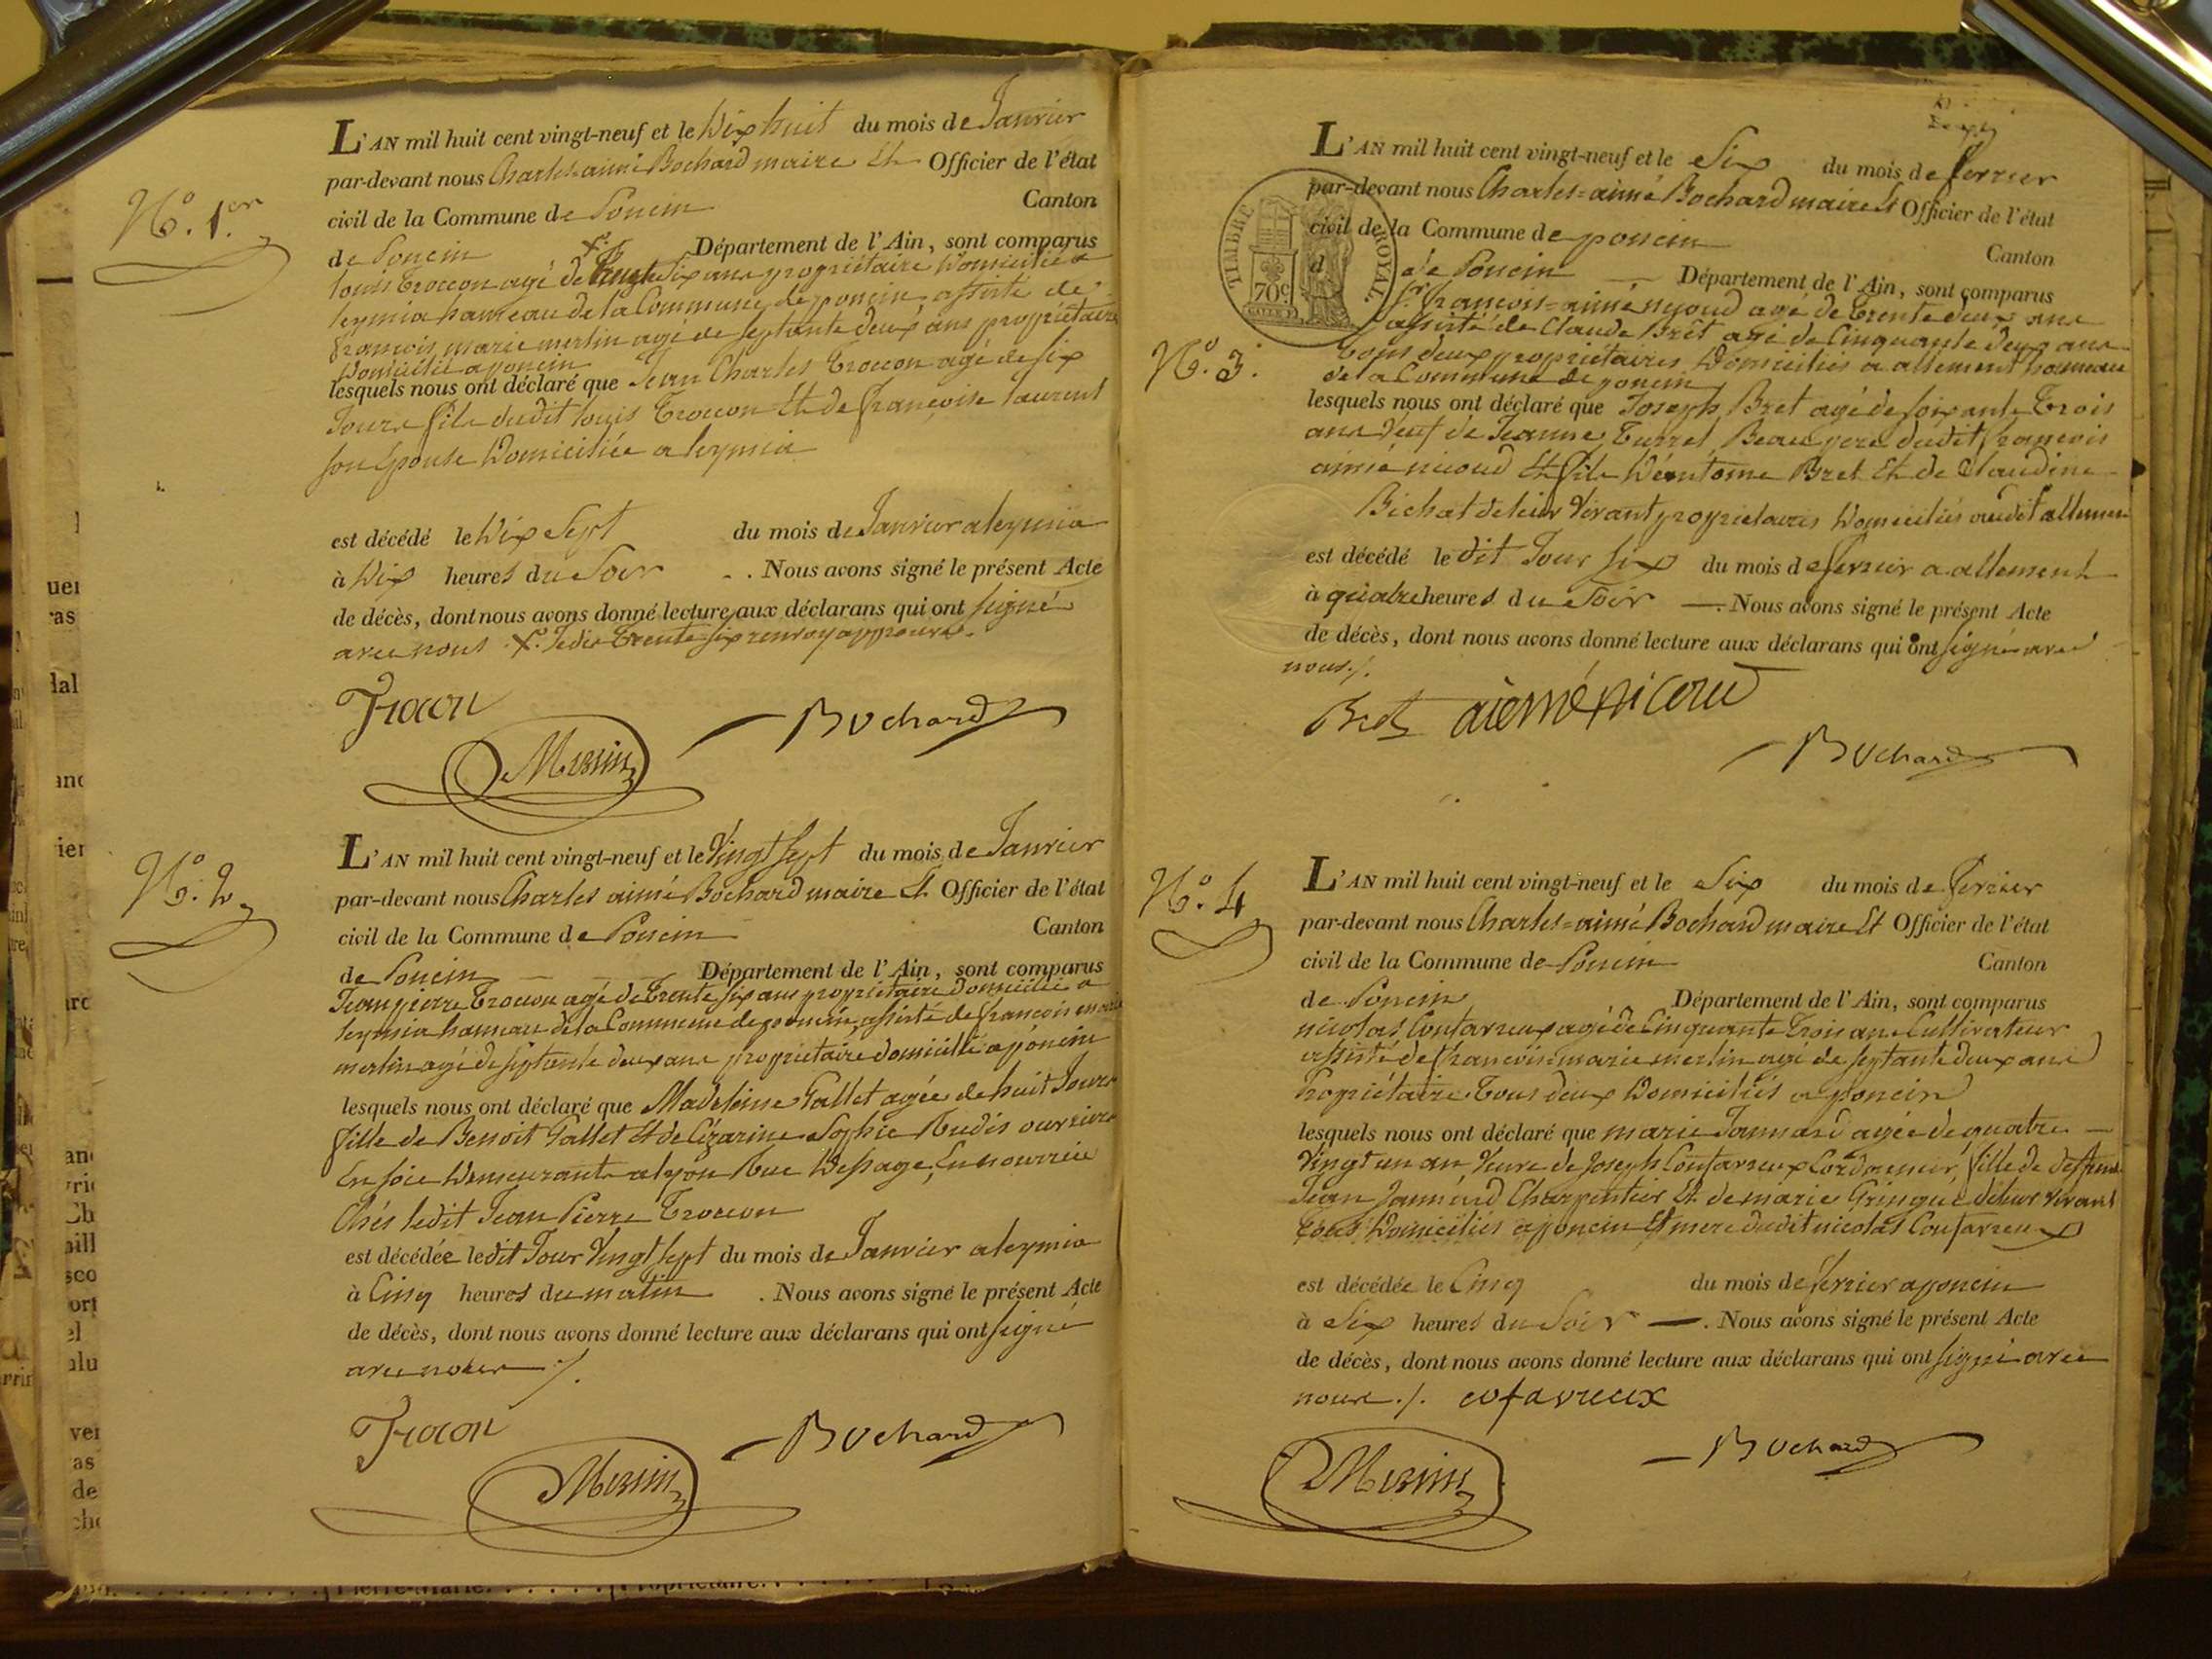 N.º 1.er
L'AN mil huit cent vingt-neuf et le Dix huit du mois de Janvier
par-devant nous Charles=aimé Bochard maire Et Officier de l'état
civil de la Commune de Poncin Canton
de Poncin Département de l'Ain, sont comparus
louis Trocon agé de six ans propriétaire Domicilié a
leymia hameau de la Commune de poncin assisté de
françois marie merlin agé de septante deux ans propriétaire
Domicilié a poncin
lesquels nous ont déclaré que Jean Charles Trocon agé de six
Jours fils dudit louis Trocon Et de françoise laurent
son Epouse Domiciliée a leymia
est décédé le Dix Sept du mois de Janvier a leymia
à Dix heures du Soir . . Nous avons signé le présent Acte
de décès, dont nous avons donné lecture aux déclarans qui ont signé
avec nous Je dis Trente six renvoy approuvé.
Trocon
Merlin
Bochard
N.º 2
L'AN mil huit cent vingt-neuf et le Vingt sept du mois de Janvier
par-devant nous Charles aimé Bochard maire Et Officier de l'état
civil de la Commune de Poncin Canton
de Poncin Département de l'Ain, sont comparus
Jean pierre Trocon agé de Trente six ans propriétaire Domicilié a
leymia hameau de la Commune de poncin, assisté de françois marie
merlin agé de septante deux ans propriétaire domicilié a poncin
lesquels nous ont déclaré que Madeleine Pallet agée de huit Jours
fille de Benoit Pallet Et de Cézarine Sophie ouvriere
En soie Demeurante a lyon Rue En nourrice
Chés ledit Jean Pierre Trocon
est décédée ledit Jour Vingt sept du mois de Janvier a leymia
à Cinq heures du matin . Nous avons signé le présent Acte
de décès, dont nous avons donné lecture aux déclarans qui ont signé
avec nous ./.
Trocon
Merlin
Bochard
TIMBRE ROYAL
70c
N.º 3.
L'AN mil huit cent vingt-neuf et le Six du mois de fevrier
par-devant nous Charles=aimé Bochard maire Et Officier de l'état
civil de la Commune de poncin Canton
de Poncin Département de l'Ain, sont comparus
sr. françois=aimé nicoud agé de Trente deux ans
assisté de Claude Bret agé de Cinquante deux ans
Tous deux propriétaires Domiciliés a allement hameau
de la Commune de poncin
lesquels nous ont déclaré que Joseph Bret agé de soixante Trois
ans Veuf de Jeanne Turrel, Beau pere dudit françois
aimé nicoud Et fils D'éantoine Bret Et de Claudine
Bichat de leur Vivant propriétaires Domiciliés audit allemen
est décédé le dit Jour Six du mois de fevrier a allement
à quatre heures du Soir . Nous avons signé le présent Acte
de décès, dont nous avons donné lecture aux déclarans qui ont signé avec
nous ./.
Bret aiemé nicoud
Bochard
N.º 4
L'AN mil huit cent vingt-neuf et le Six du mois de fevrier
par-devant nous Charles=aimé Bochard maire Et Officier de l'état
civil de la Commune de Poncin Canton
de Poncin Département de l'Ain, sont comparus
nicolas Confavreux agé de Cinquante Trois ans Cultivateur
assisté de françois=marie merlin agé de septante deux ans
Propriétaire Tous deux Domiciliés a poncin
lesquels nous ont déclaré que marie Jannard agée de quatre
Vingt un an Veuve de Joseph Confavreux Cordonnier, fille de deffunt
Jean Jannard Charpentier Et de marie Gringué deleur vivant
Tous Domiciliés a poncin Et mere dudit nicolas Confavreux
est décédée le Cinq du mois de fevrier a poncin
à Six heures du Soir . Nous avons signé le présent Acte
de décès, dont nous avons donné lecture aux déclarans qui ont signé avec
nous ./. cofavreux
Merlin
Bochard